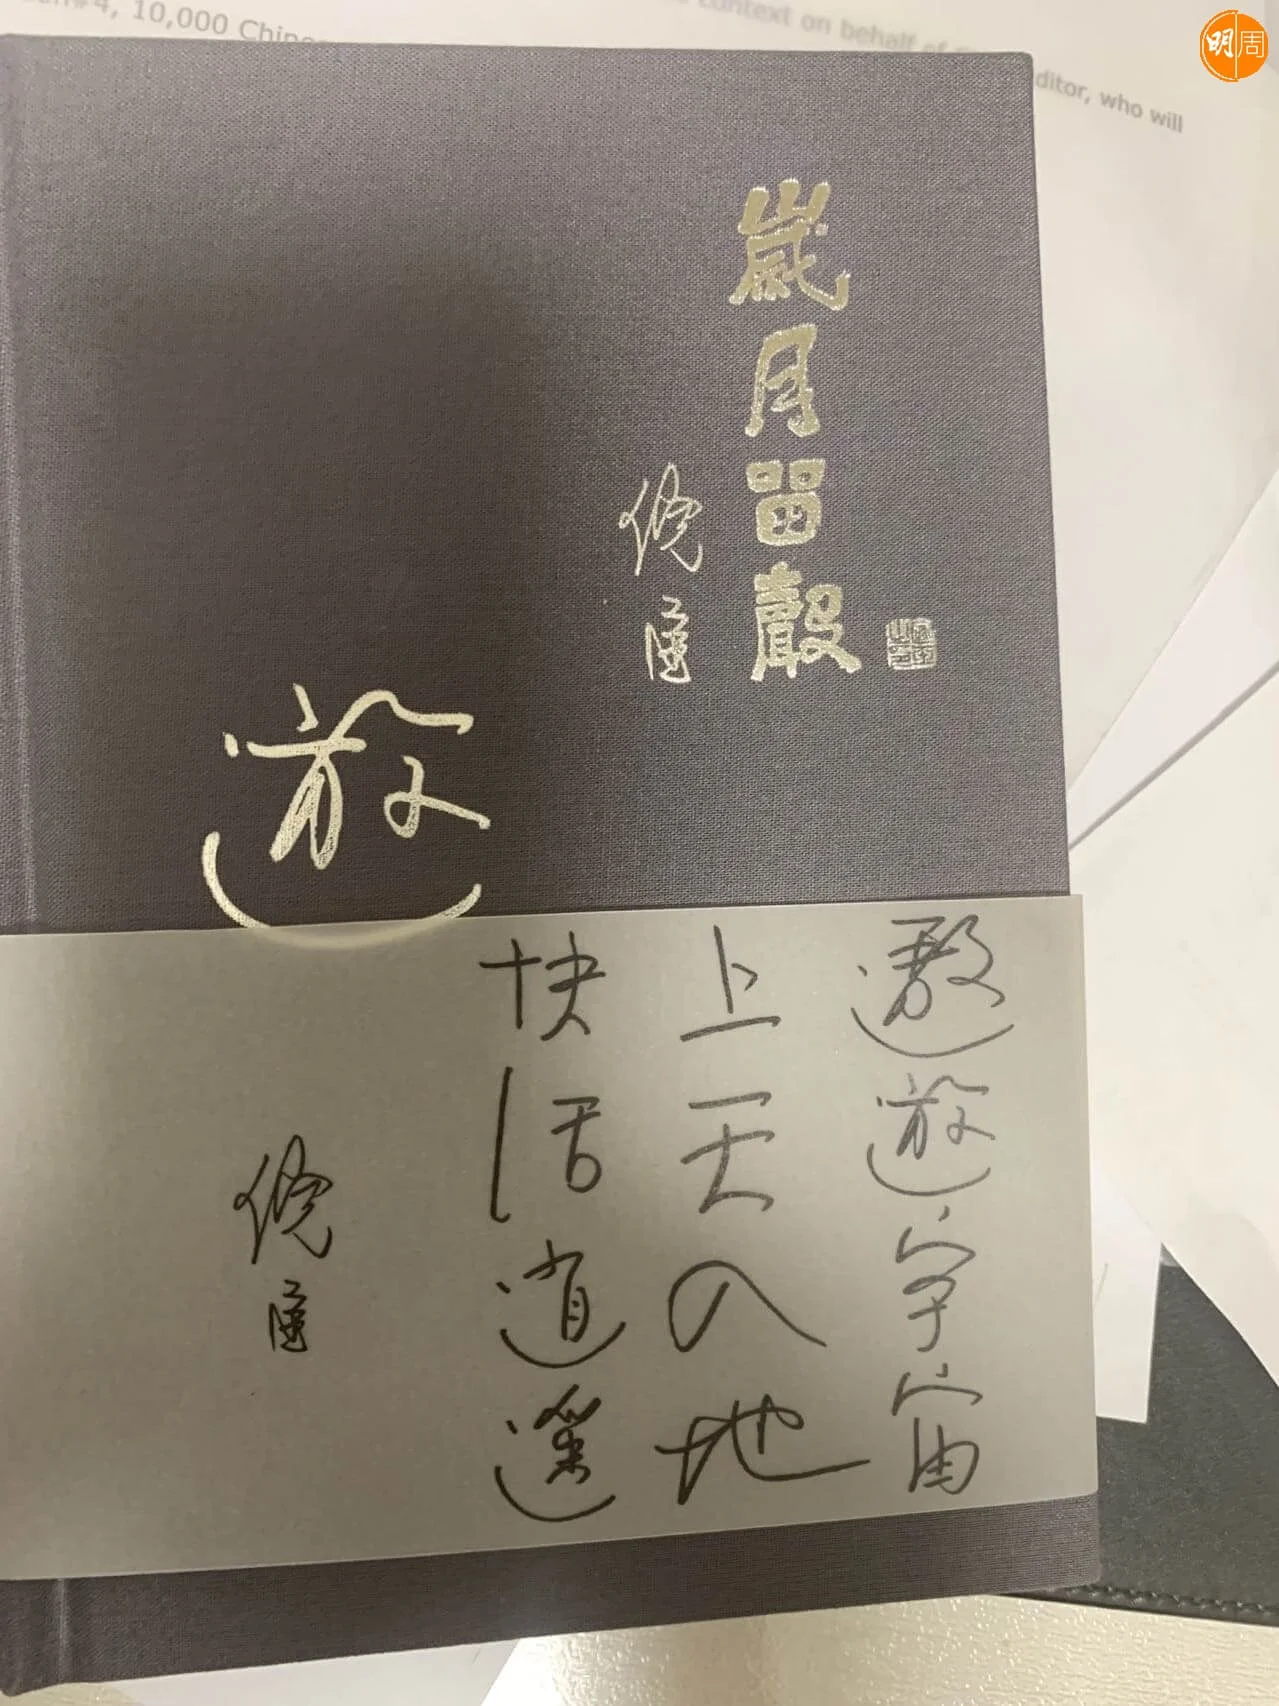 明周
#4, 10,000
context on behalf of
ditor, who will
歲月留聲
倪匡
遊
遨遊宇宙
上天入地
快活逍遙
倪匡